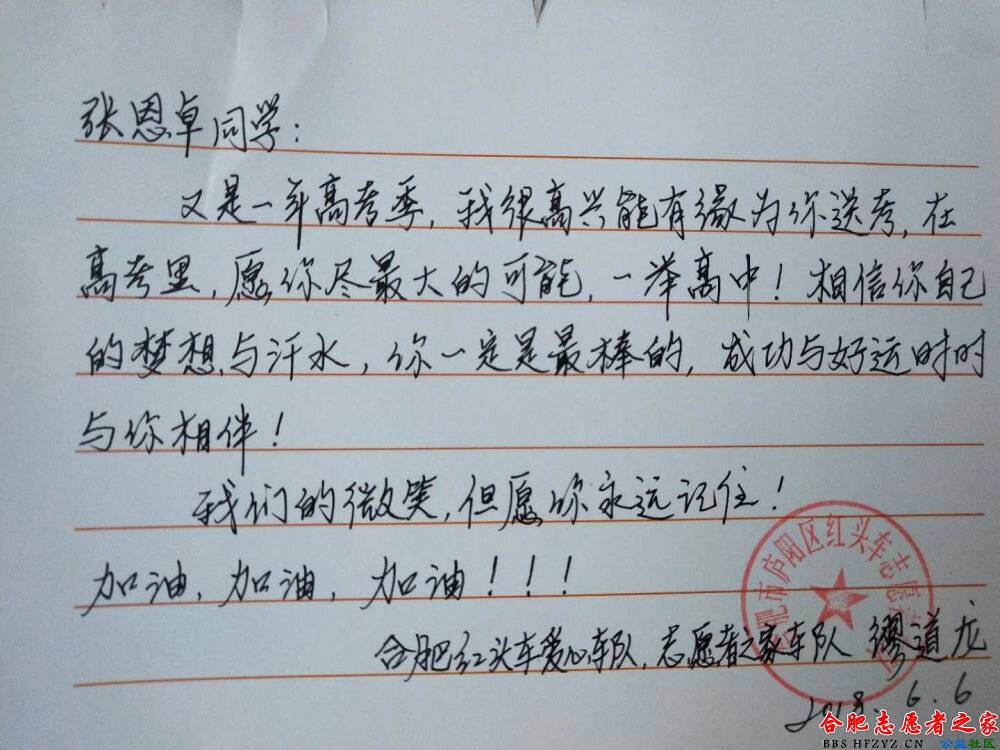 张恩卓同学：
又是一年高考季，我很高兴能有缘为你送考，在
高考里，愿你尽最大的可能，一举高中！相信你自己
的梦想与汗水，你一定是最棒的，成功与好运时时
与你相伴！
我们的微笑，但愿你永远记住！
加油，加油，加油！！！
合肥红头车爱心车队，志愿者之家车队 缪道龙
2018.6.6
肥市庐阳区红头车志愿
合肥志愿者之家
BBS.HFZYZ.CN 公益社区